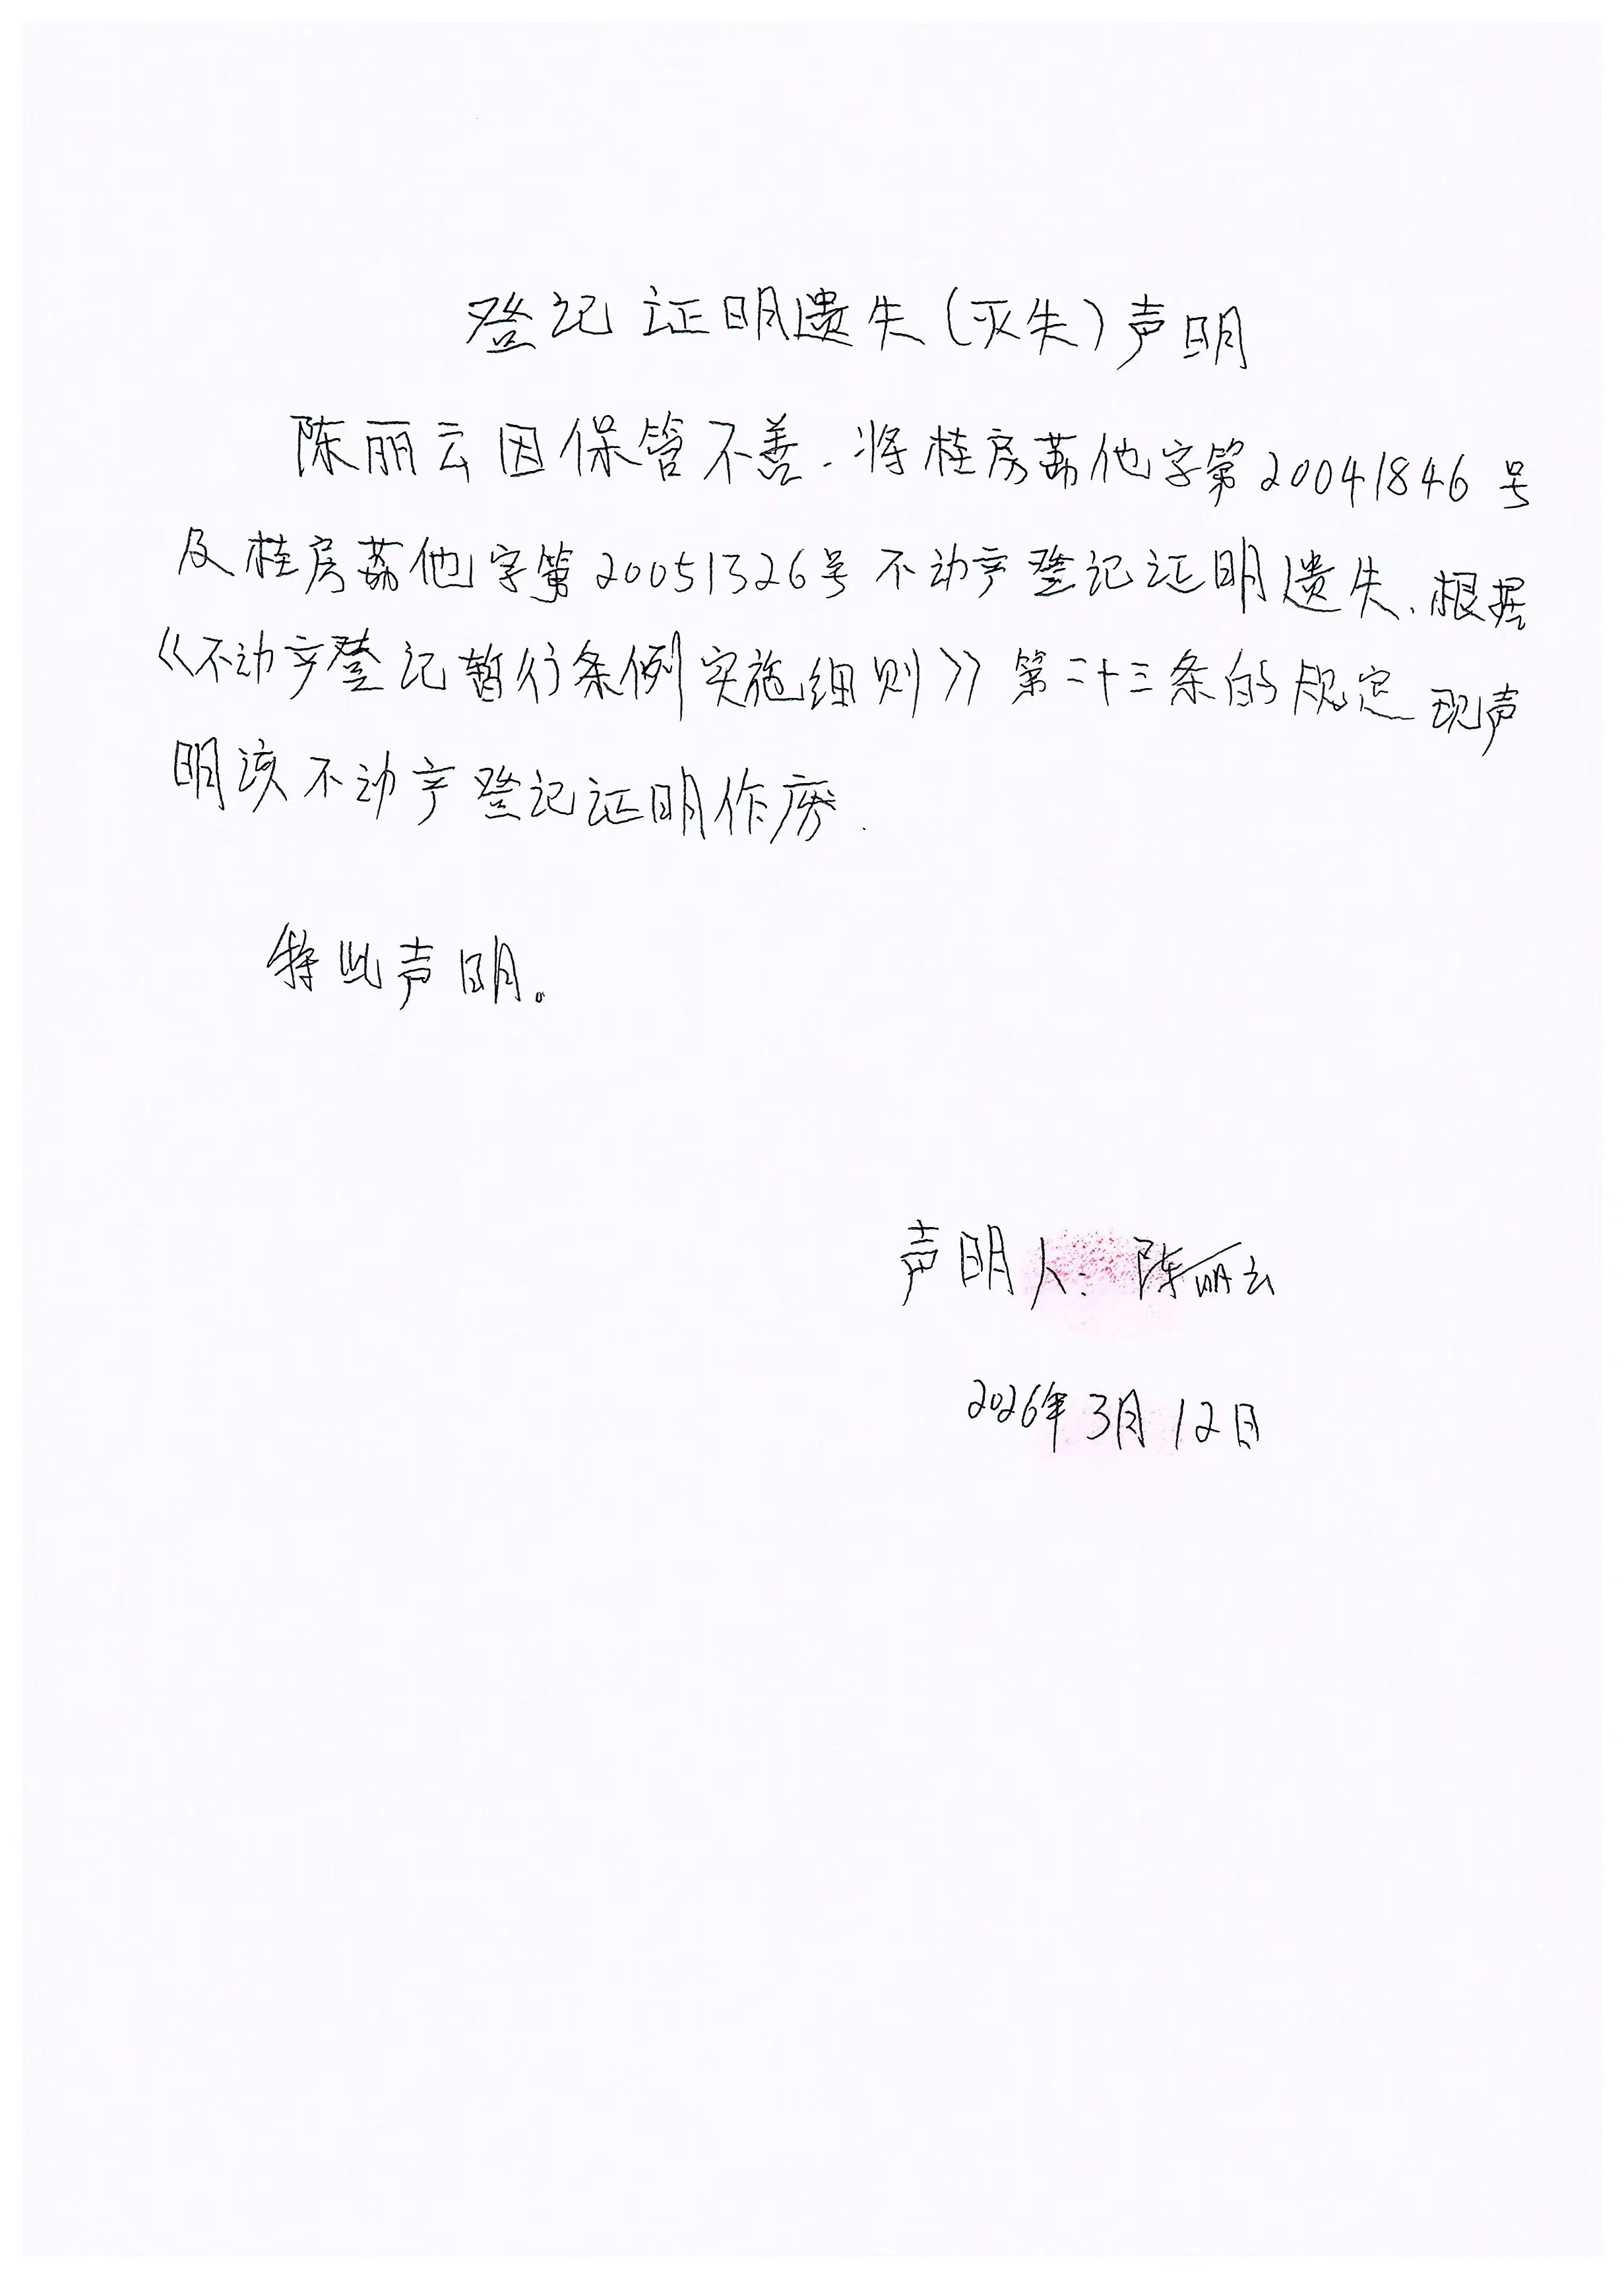 登记证明遗失(灭失)声明
陈丽云因保管不善、将桂房荔他字第20041846号
及桂房荔他字第20051326号不动产登记证明遗失、根据
《不动产登记暂行条例实施细则》第二十三条的规定 现声
明该不动产登记证明作废.
特此声明。
声明人: 陈丽云
2026年3月12日